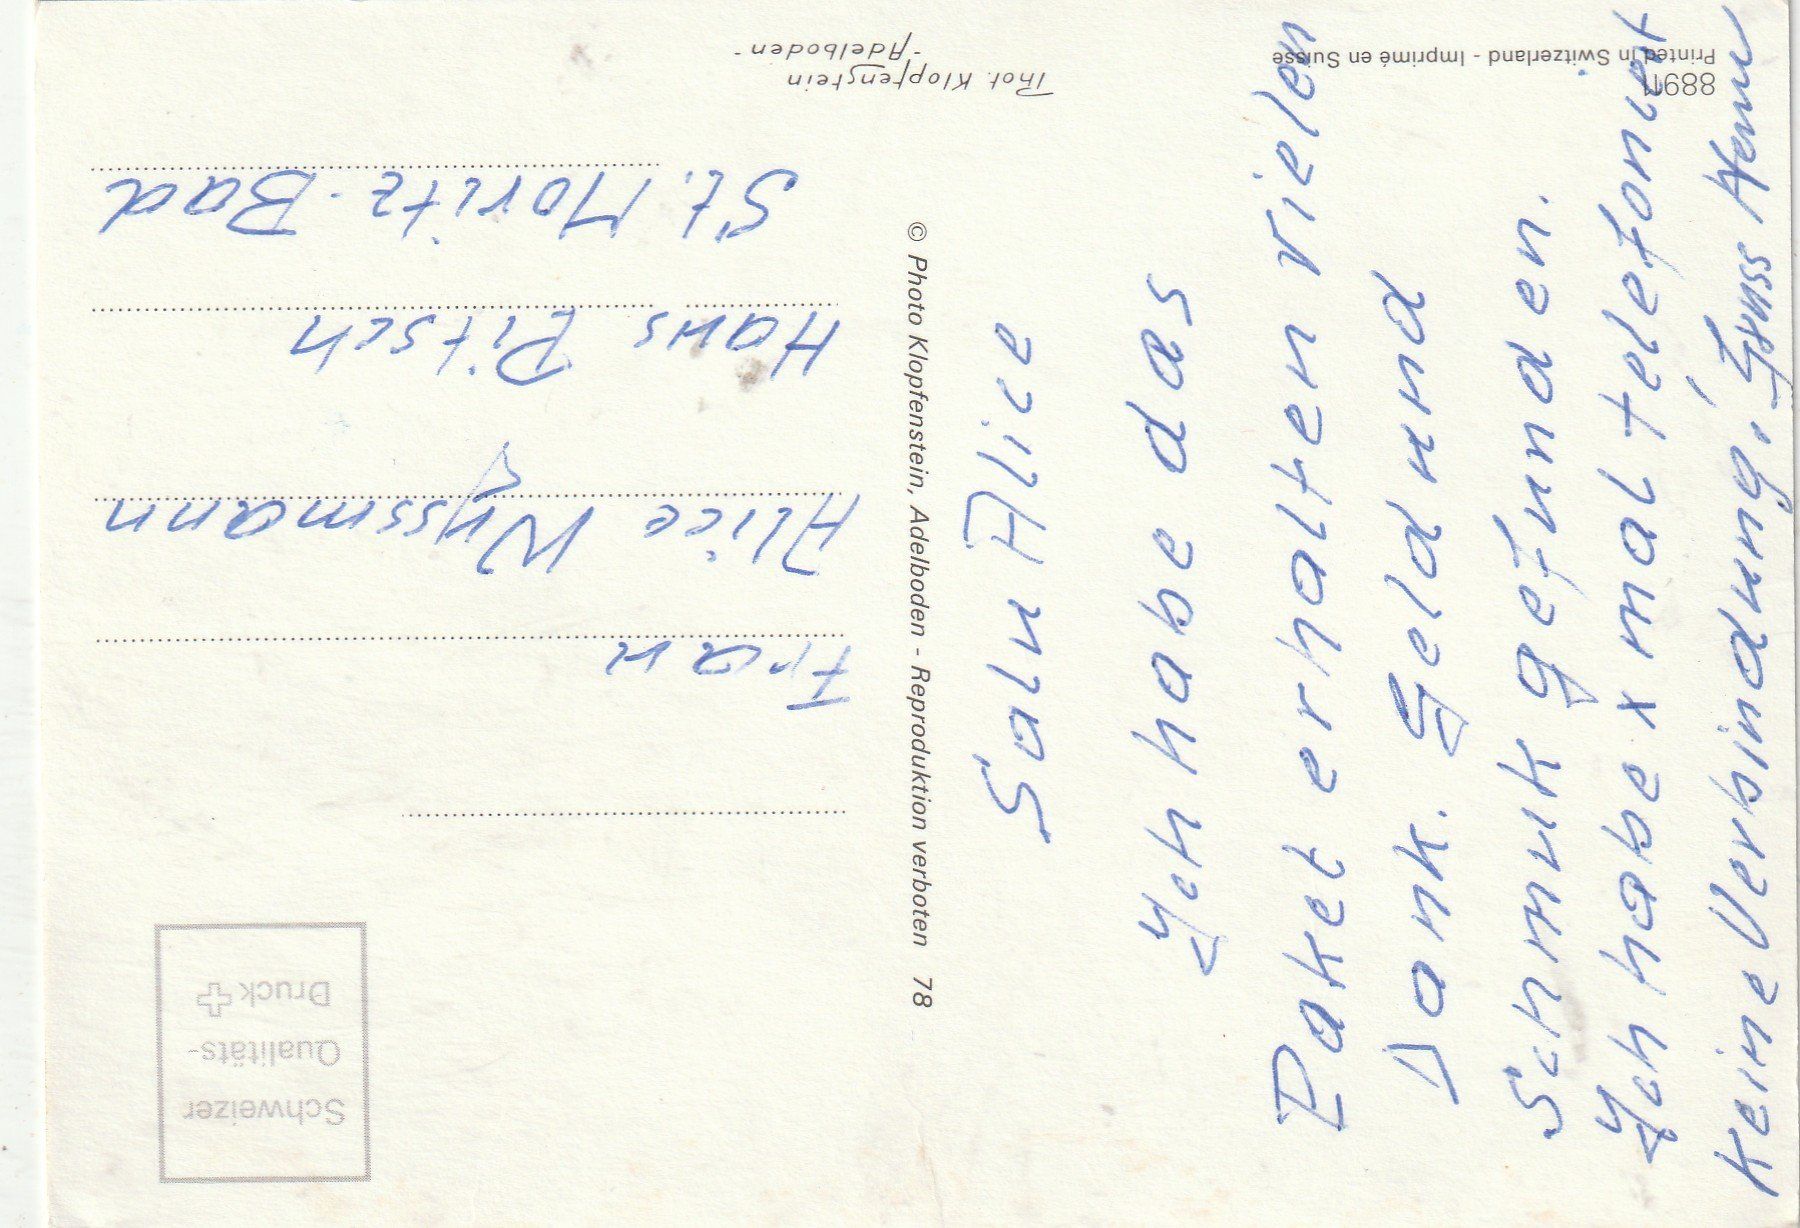 Salu Alice
Ich habe das
Paket erhalten vielen
Dank. Geld und
Schmuk gefunden.
Ich habe x mal telefoniert
keine Verbindung, Gruss
Frau
Alice Wyssmann
Hans Pitsch
St. Moritz-Bad
Schweizer
Qualitäts-
Druck
© Photo Klopfenstein, Adelboden - Reproduktion verboten 78
Phot. Klopfenstein
-Adelboden-
88911
Printed in Switzerland - Imprimé en Suisse